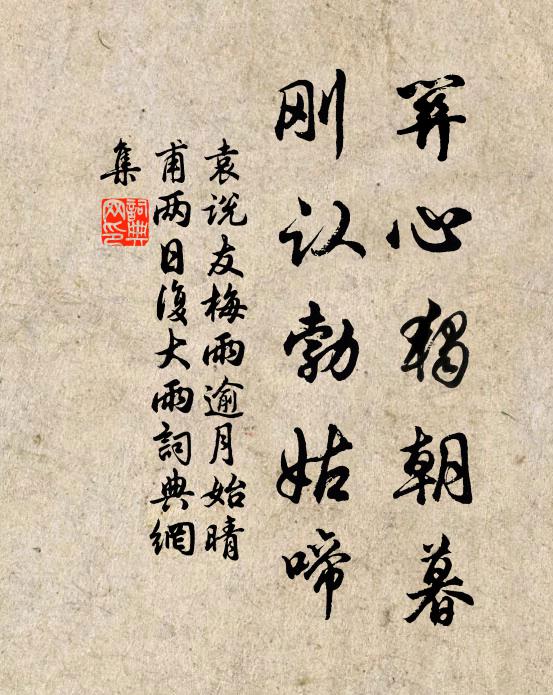 關心獨朝暮
刚认勃姑啼
袁说友梅雨逾月始晴
甫两日復大雨詞典網
集
詞典
网印